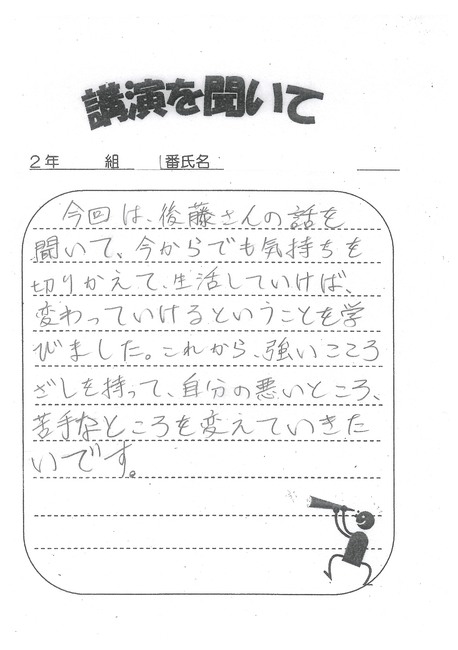 講演を聞いて
2年　組　番氏名
今回は、後藤さんの話を
聞いて、今からでも気持ちを
切りかえて、生活していけば、
変わっていけるということを学
びました。これから、強いこころ
ざしを持って、自分の悪いところ、
苦手なところを変えていきた
いです。